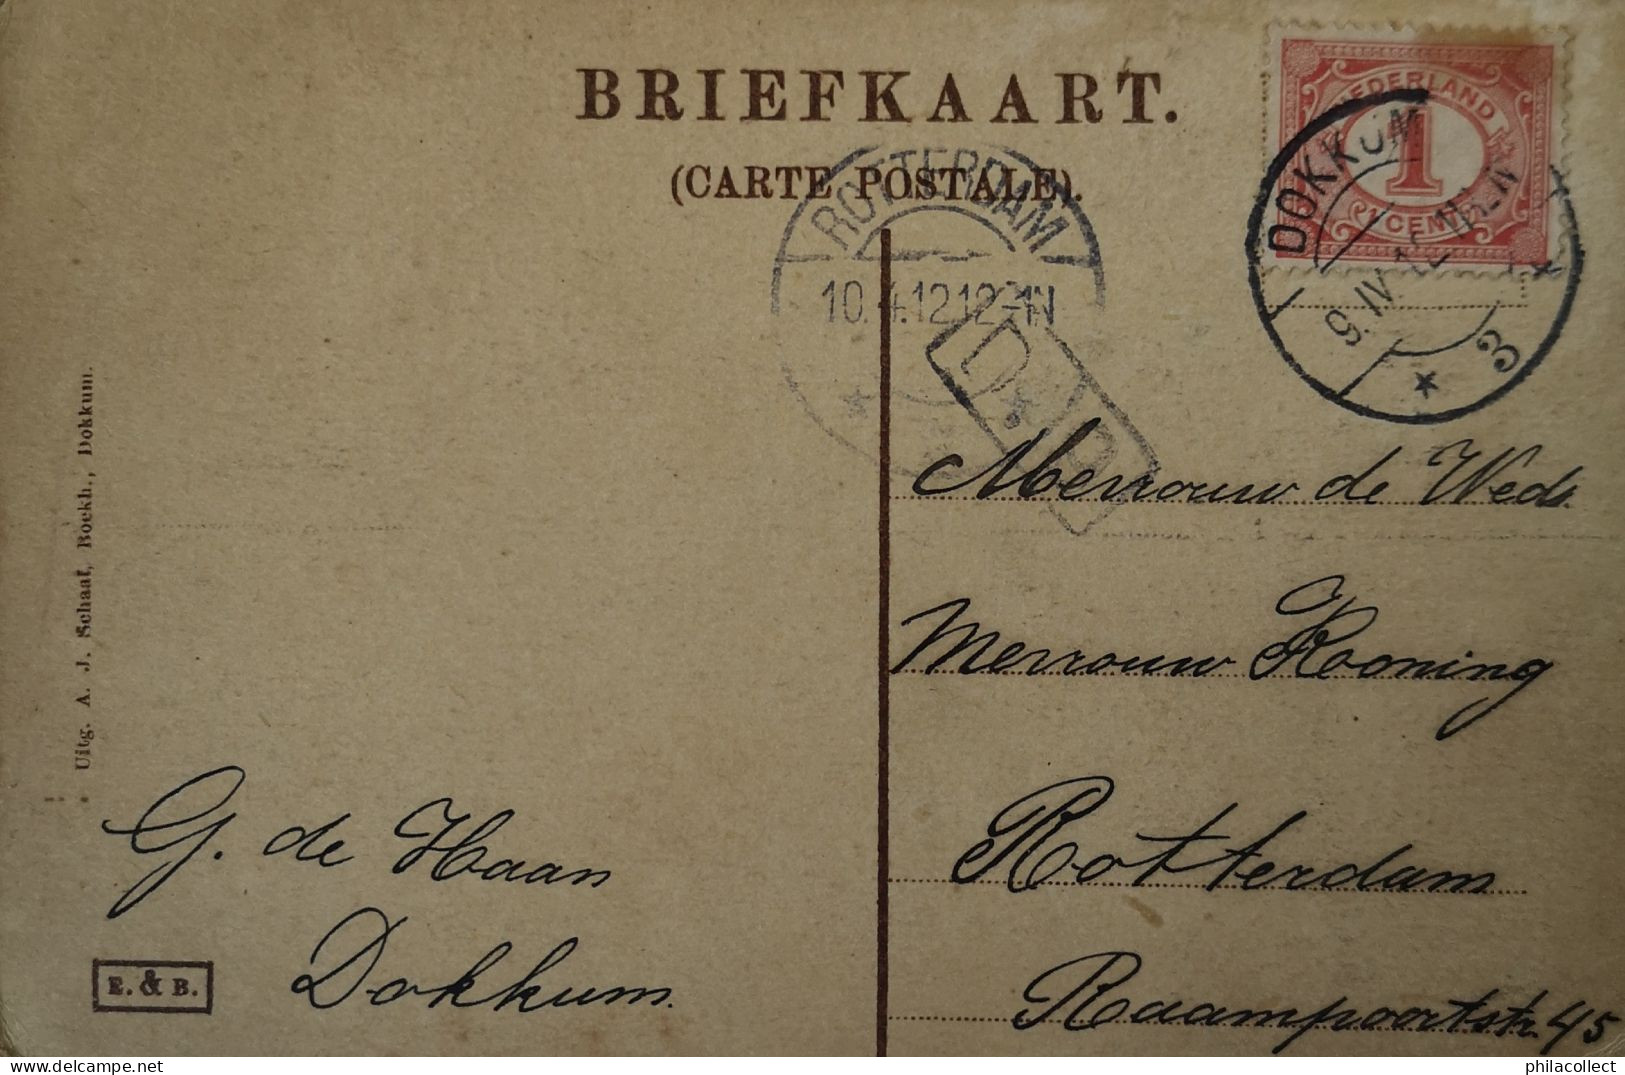 BRIEFKAART.
(CARTE POSTALE).
NEDERLAND
1
1 CENT
DOKKUM
9.IV.12 11-12N
3
ROTTERDAM
10.4.12 12-1N
D
Uitg. A. J. Schaaf, Boekh., Dokkum.
Mevrouw de Wede.
Mevrouw Kooning
Rotterdam
Raampoortstr. 45
G. de Haan
Dokkum.
E. & B.
delcampe.net
philacollect